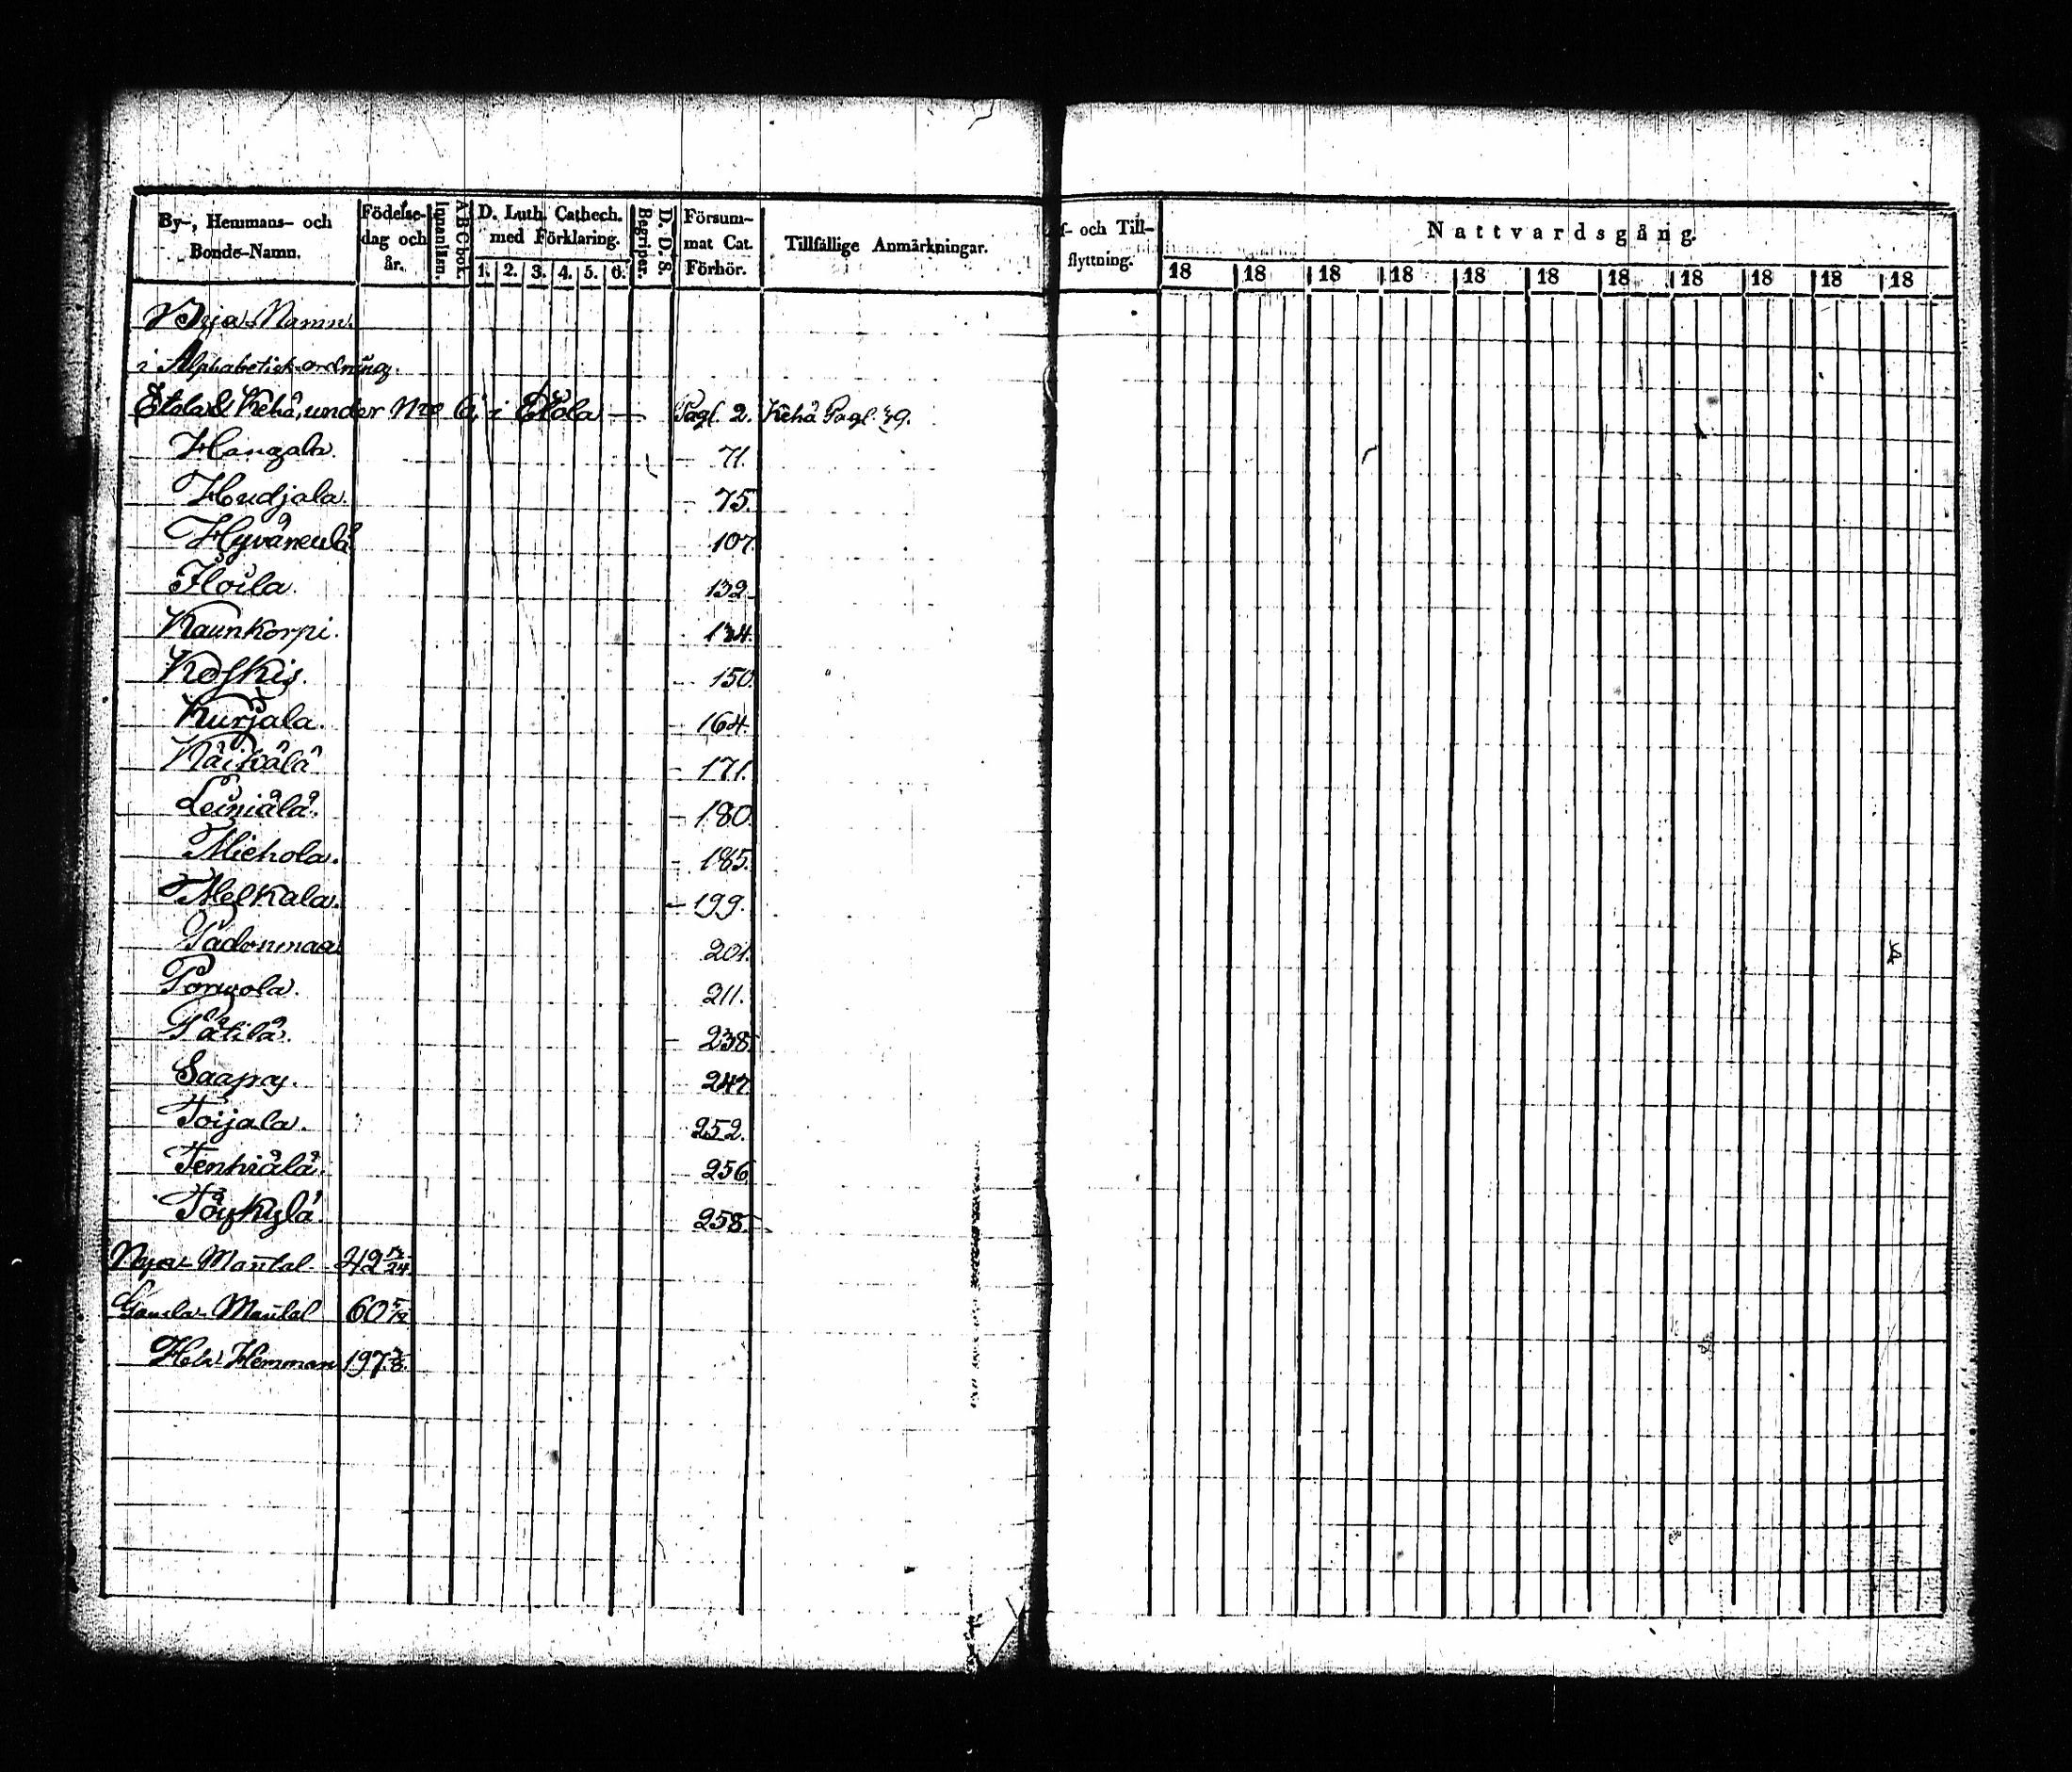 By-, Hemmans- och Bonde-Namn.
Födelse-dag och år.
Innanläsn.
A B C bok.
D. Luth. Cathech. med Förklaring.
1. 2. 3. 4. 5. 6.
Begriper.
D. D. S.
Försum-mat Cat. Förhör.
Tillfällige Anmärkningar.
f- och Till-flyttning.
Nattvardsgång.
18 18 18 18 18 18 18 18 18 18 18
Byja Namn.
i Alphabetisk ordning.
Etola & Kehä, under Nro 6, i Etola — Pagl. 2. Kehä Pagl. 49.
Hangala. — 71.
Hudjala. — 75.
Hyväneulä. — 107.
Iloila. 132.
Kaunkorpi. — 134.
Koskis. — 150.
Kurjala. — 164.
Käikälä — 171.
Leiniälä. — 180.
Miehola. — 185.
Melkala. — 199.
Padonmaa 201.
Porwola. 211.
Pätilä. — 238.
Saapay. 247.
Toijala. 252.
Tenhiälä. — 256.
Töykylä. 258.
Nya Mantal. 42
Gamla Mantal 60
Hela Hemman 197